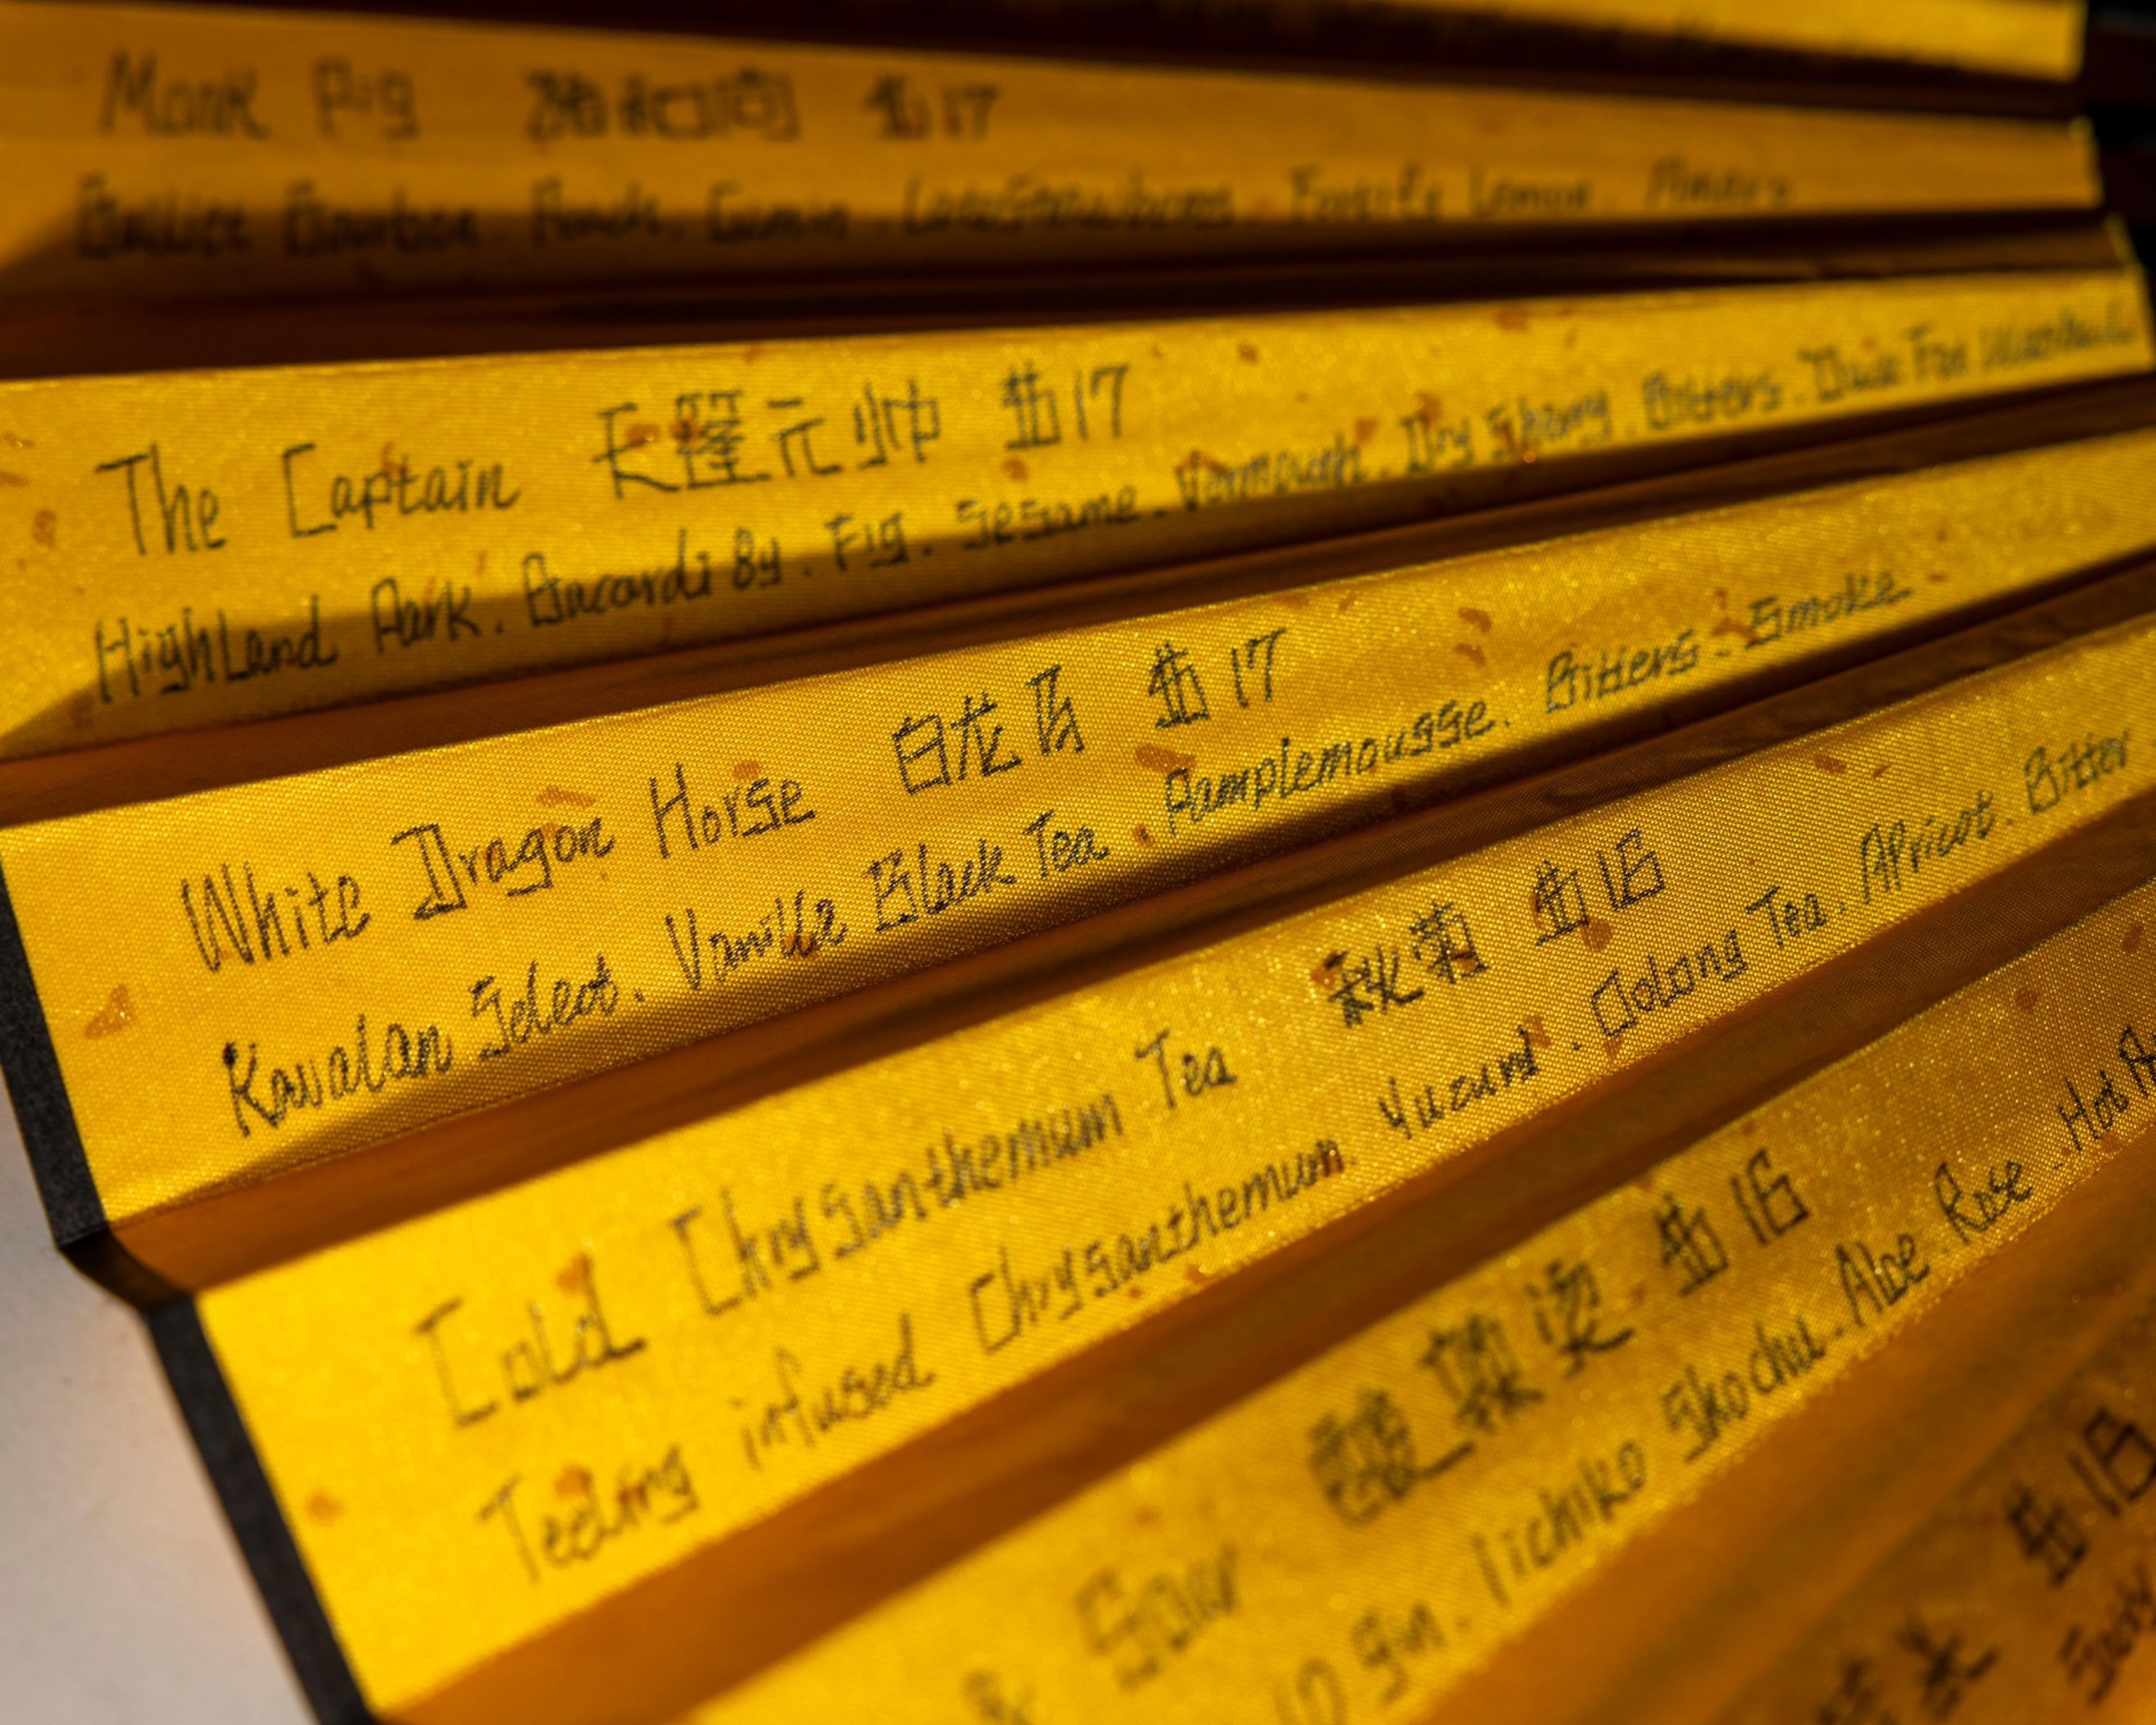 Monk Pig 猪和尚 $17
Bulleit Bourbon. Peach. Cumin. Lemon.
The Captain 天篷元帅 $17
Highland Park. Bacardi 8y. Fig. Sesame. Vermouth. Dry Sherry. Bitters.
White Dragon Horse 白龙马 $17
Kavalan Select. Vanilla Black Tea. Pamplemousse. Bitters. Smoke
Cold Chrysanthemum Tea 秋菊 $16
Teeling infused Chrysanthemum. Yuzund. Oolong Tea. Apricot. Bitter
& Sour 酸辣烫 $16
10 Gin. Iichiko Shochu. Aloe. Rose. Hot
$16